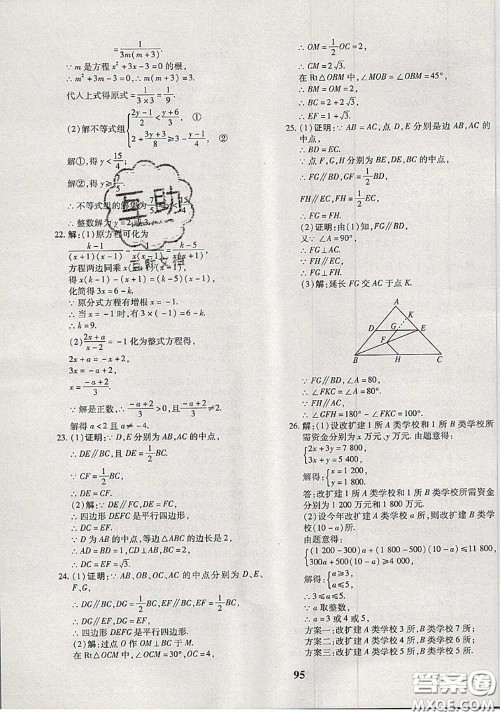 = 1/(3m(m+3)).
∵ m 是方程 x²+3x-3=0 的根,
∴ m²+3m-3=0,即 m(m+3)=3.
代入上式得原式 = 1/(3×3) = 1/9.
(2)解不等式组 { (y-2)/3 < (y+6)/3, ①
2+(3y+3)/8 ≥ 3-(y-1)/4, ②
解①,得 y < 15/4
解②,得 y ≥
∴ 不等式组的解集为 7/5
∴ 整数解为
22.解:(1)原方程可化为
(k-1)/((x+1)(x-1)) - 1/(x(x-1)) = (k-5)/(x(x+1))
方程两边同乘 x(x+1)(x-1),得
x(k-1)-(x+1)=(k-5)(x-1),
化简得 3x=6-k.
∵ 原分式方程有增根 x=-1,
∴ 当 x=-1 时,有 3×(-1)=6-k,
∴ k=9.
(2) (2x+a)/(x-2) = -1 化为整式方程得
2x+a=-x+2,
x = (-a+2)/3.
∵ 解是正数,∴ (-a+2)/3 > 0 且 (-a+2)/3 ≠ 2,
解得 a<2 且 a≠-4.
23.(1)证明:∵ D、E 分别为 AB、AC 的中点,
∴ DE∥BC,且 DE = 1/2 BC,
∵ CF = 1/2 BC,
∴ DE=CF.
(2)解:∵ DE∥FC,DE=FC,
∴ 四边形 DEFC 是平行四边形,
∴ DC=EF.
∵ D 为 AB 的中点,等边△ABC 的边长是 2,
∴ DC=EF=√3.
24.(1)证明:∵ AB、OB、OC、AC 的中点分别为 D、
F、G,
∴ DG∥BC,DG=1/2 BC,EF∥BC,EF=1/2 BC,
∴ DG∥EF,DG=EF,
∴ 四边形 DEFG 是平行四边形.
(2)解:过点 O 作 OM⊥BC 于 M,
在 Rt△OCM 中,∠OCM=30°,OC=4,
∴ OM = 1/2 OC = 2,
∴ CM = 2√3.
在 Rt△OBM 中,∠MOB=∠OBM=45°,
∴ BM=OM=2,
∴ BC=2+2√3,
∴ EF=1+√3.
25.(1)证明:∵ AB=AC,点 D、E 分别是边 AB、AC 的
中点,
∴ BD=EC.
∵ 点 F、G、H 分别为 BE、DE、BC 的中点,
∴ FG∥BD,FG=1/2 BD,
FH∥EC,FH=1/2 EC,
∴ FG=FH.
(2)证明:由(1)知,FG∥BD,
又∵ ∠A=90°,
∴ FG⊥AC.
∵ FH∥EC,
∴ FG⊥FH.
(3)解:延长 FG 交 AC 于点 K.
A
K
D G E
F
B H C
∵ FG∥BD,∠A=80°,
∴ ∠FKC=∠A=80°.
∵ FH∥EC,
∴ ∠GFH=180°-∠FKC=100°.
26.解:(1)设改扩建 1 所 A 类学校和 1 所 B 类学校所
需资金分别为 x 万元、y 万元.由题意得:
{2x+3y=7 800,
3x+y=5 400.
解得: {x=1 200,
y=1 800.
答:改扩建 1 所 A 类学校和 1 所 B 类学校所需资金
分别为 1 200 万元和 1 800 万元.
(2)设今年改扩建 A 类学校 a 所,则改扩建 B 类学
校(10-a)所.
由题意得:
{(1 200-300)a+(1 800-500)(10-a)≤11 800,
300a+500(10-a)≥4 000.
解得: {a≥3,
a≤5,
∴ 3≤a≤5,
∵ a 取整数,
∴ a=3 或 4 或 5,
方案一:改扩建 A 类学校 3 所,B 类学校 7 所;
方案二:改扩建 A 类学校 4 所,B 类学校 6 所;
方案三:改扩建 A 类学校 5 所,B 类学校 5 所.
95
互助
答案圈
MXQE.COM